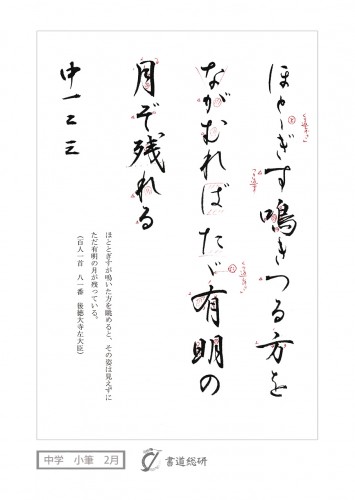 ほとゝぎす鳴きつる方を
ながむればたゞ有明の
月ぞ残れる
中一二三
ほととぎすが鳴いた方を眺めると、その姿は見えずに
ただ有明の月が残っている。
（百人一首　八一番　後徳大寺左大臣）
中学　小筆　2月
書道総研